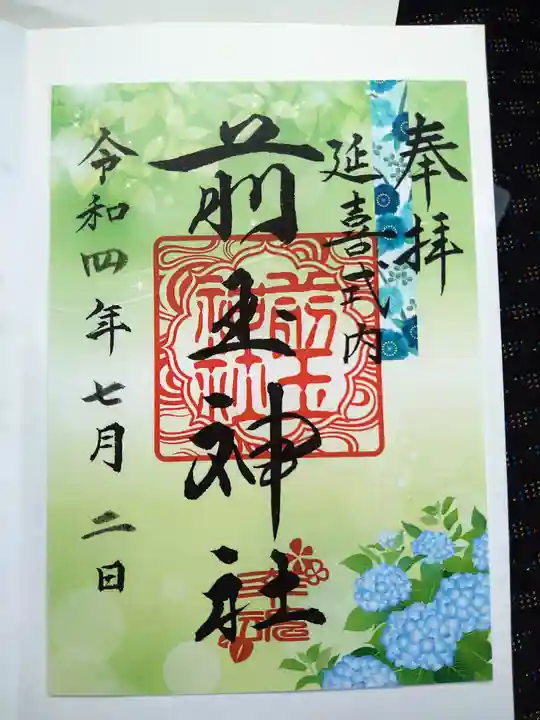 奉拝
延喜式内
前玉神社
前玉
神社
令和四年七月二日